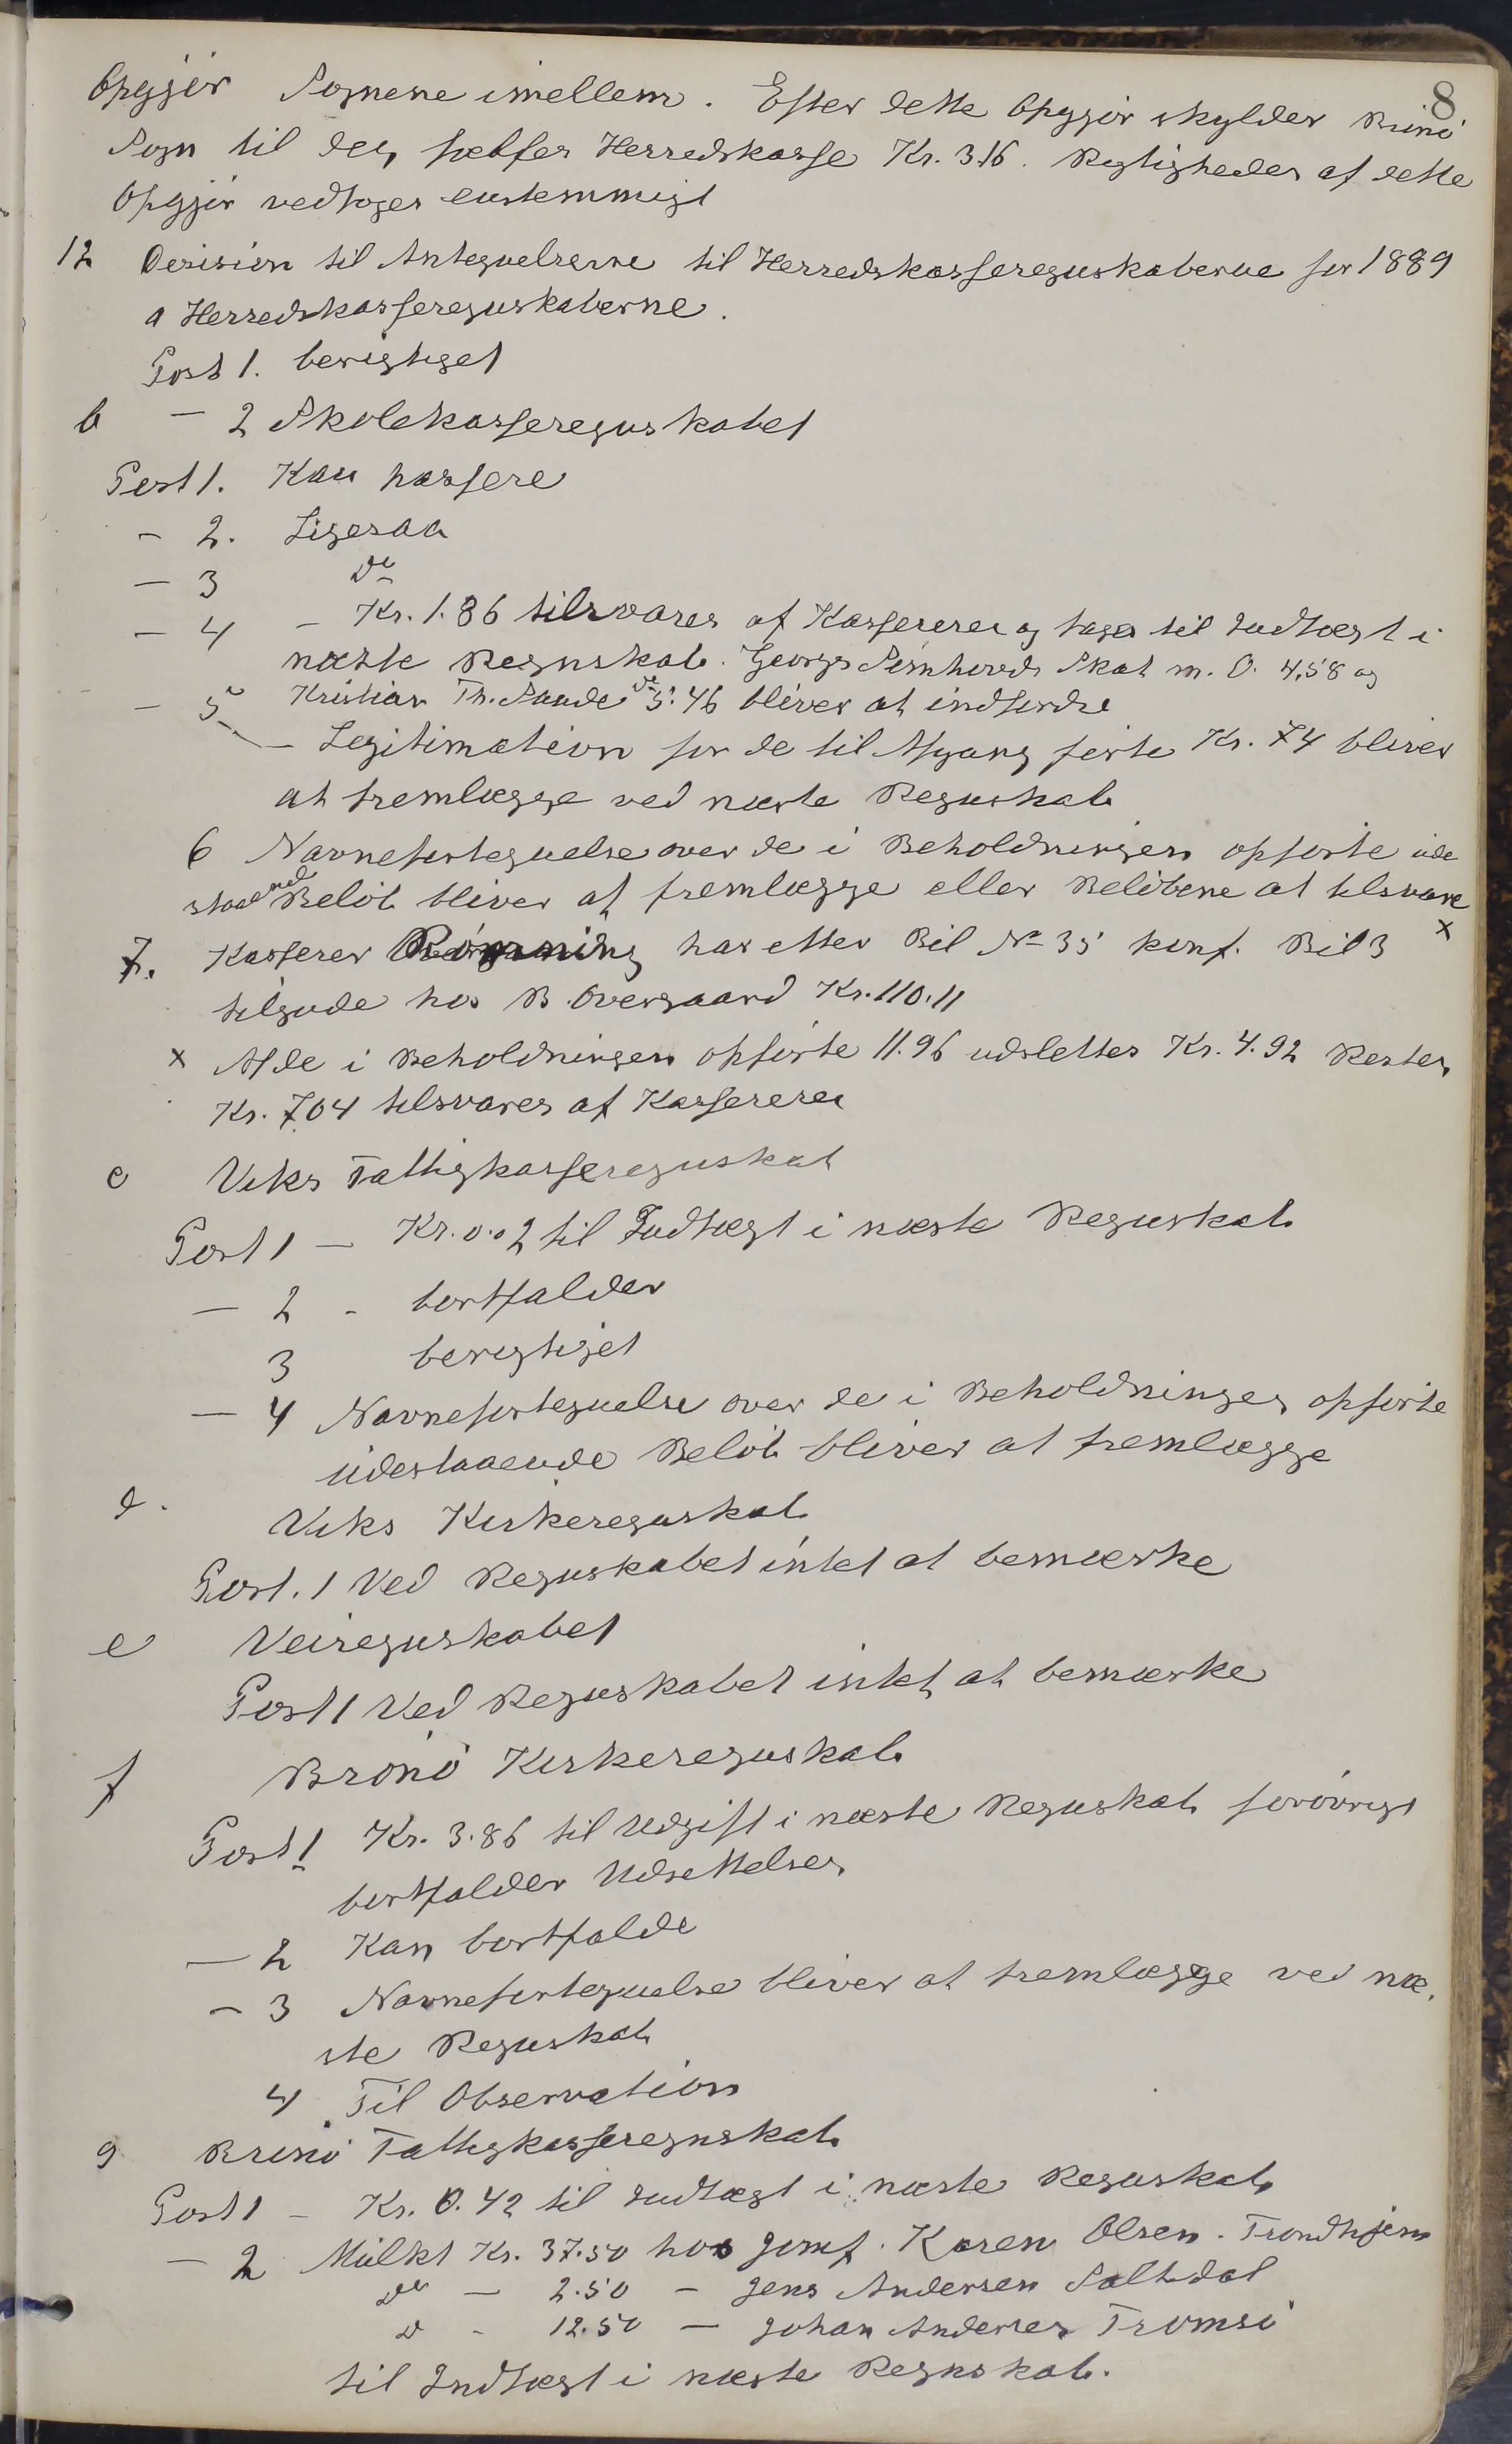 8
Opgjør Sognene imellem. Efter dette Opgjør skylder Brønø
Sogn til den fælles Herredskasse Kr. 3.16. Rigtigheden af dette
Opgjør vedtoges enstemmigt
12 Desision til Antegnelserne til Herredskasseregnskaberne for 1889
a Herredskasseregnskaberne.
Post 1. berigtiget
b – 2 Skolekasseregnskabet
Post 1. Kan passere
– 2. Ligesaa
– 3 do
– 4 – Kr. 1.86 tilsvares af Kassereren og tages til Indtægt i
næste Regnskab. Georgs Skat m. O. 4,58 og
– 5 Kristian Th. Saude do 5.46 bliver at indfordre
– Legitimation for de til Afgang førte Kr. 74 bliver
at fremlægge ved næste Regnskab
6 Navnefortegnelse over de i Beholdningen opførte ude
staaende Beløb bliver at fremlægge eller Beløbene at tilsvare x
7. Kasserer Rønning har efter Bil No 35 konf. Bil 3
tilgode hos B. Overgaard Kr. 110.11
x Af de i Beholdningen opførte 11.96 udslettes Kr. 4.92 Resten
Kr. 7.04 tilsvares af Kassereren
c Viks Fattigkasseregnskab
Post 1 – Kr. 0.02 til Indtægt i næste Regnskab
– 2 - bortfalder
3 berigtiget
– 4 Navnefortegnelse over de i Beholdningen opførte
udestaaende Beløb bliver at fremlægge
d. Viks Kirkeregnskab
Post. 1 Ved Regnskabet intet at bemærke
e Veiregnskabet
Post 1 Ved Regnskabet intet at bemærke
f Brønø Kirkeregnskab
Post 1 Kr. 3.86 til Udgift i næste Regnskab forøvrigt
bortfalder Udsettelsen
– 2 Kan bortfalde
– 3 Navnefortegnelse bliver at fremlægge ved næ-
ste Regnskab
4 Til Observation
g Brønø Fattigkasseregnskab
Post 1 – Kr. 0.42 til Indtægt i næste Regnskab
– 2 Mulkt Kr. 37.50 hos Jomf. Karen Olsen - Trondhjem
do – 2.50 – Jens Andersen Saltdal
do - 12.50 – Johan Andersen Tromsø
til Indtægt i næste Regnskab.